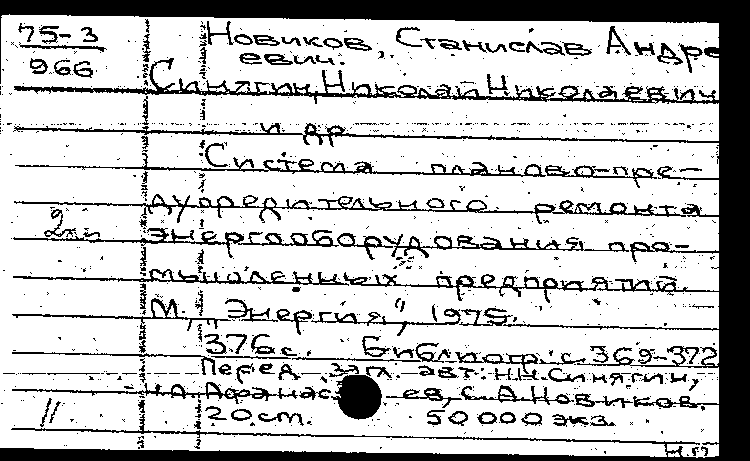 75-3
966
Новиков, Станислав Андре
евич.
Синягин, Николай Николаевич
и др
Система планово-пре-
дупредительного ремонта
энергооборудования про-
мышленных предприятий.
М., „Энергия", 1975.
376 с. Библиогр.: с. 369-372
Перед загл. авт.: Н.Н. Синягин,
Н.А. Афанасьев, С.А. Новиков.
20 см. 50 000 экз.
//